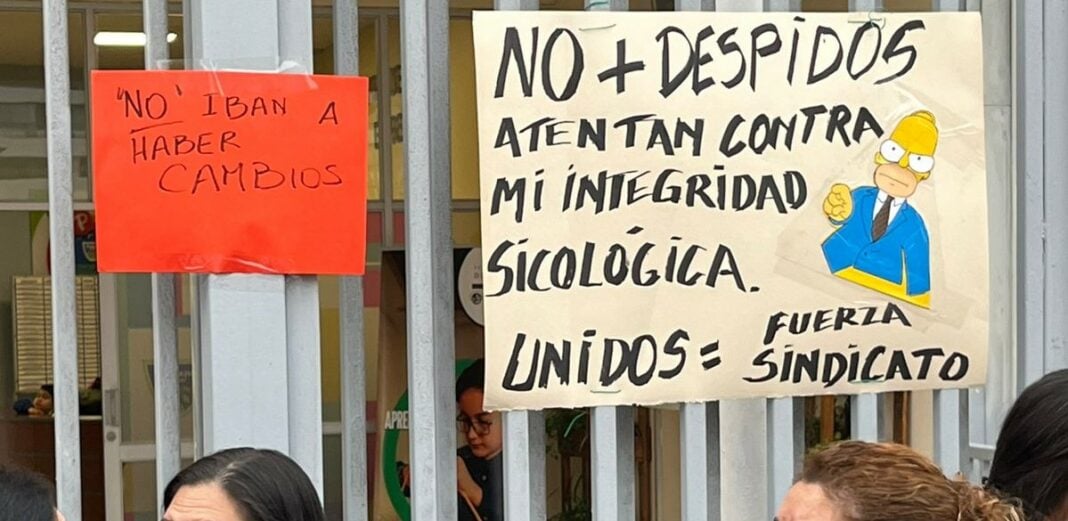 "NO" IBAN A
HABER
CAMBIOS
NO + DESPIDOS
ATENTAN CONTRA
MI INTEGRIDAD
SICOLÓGICA.
UNIDOS = FUERZA
SINDICATO
APRE